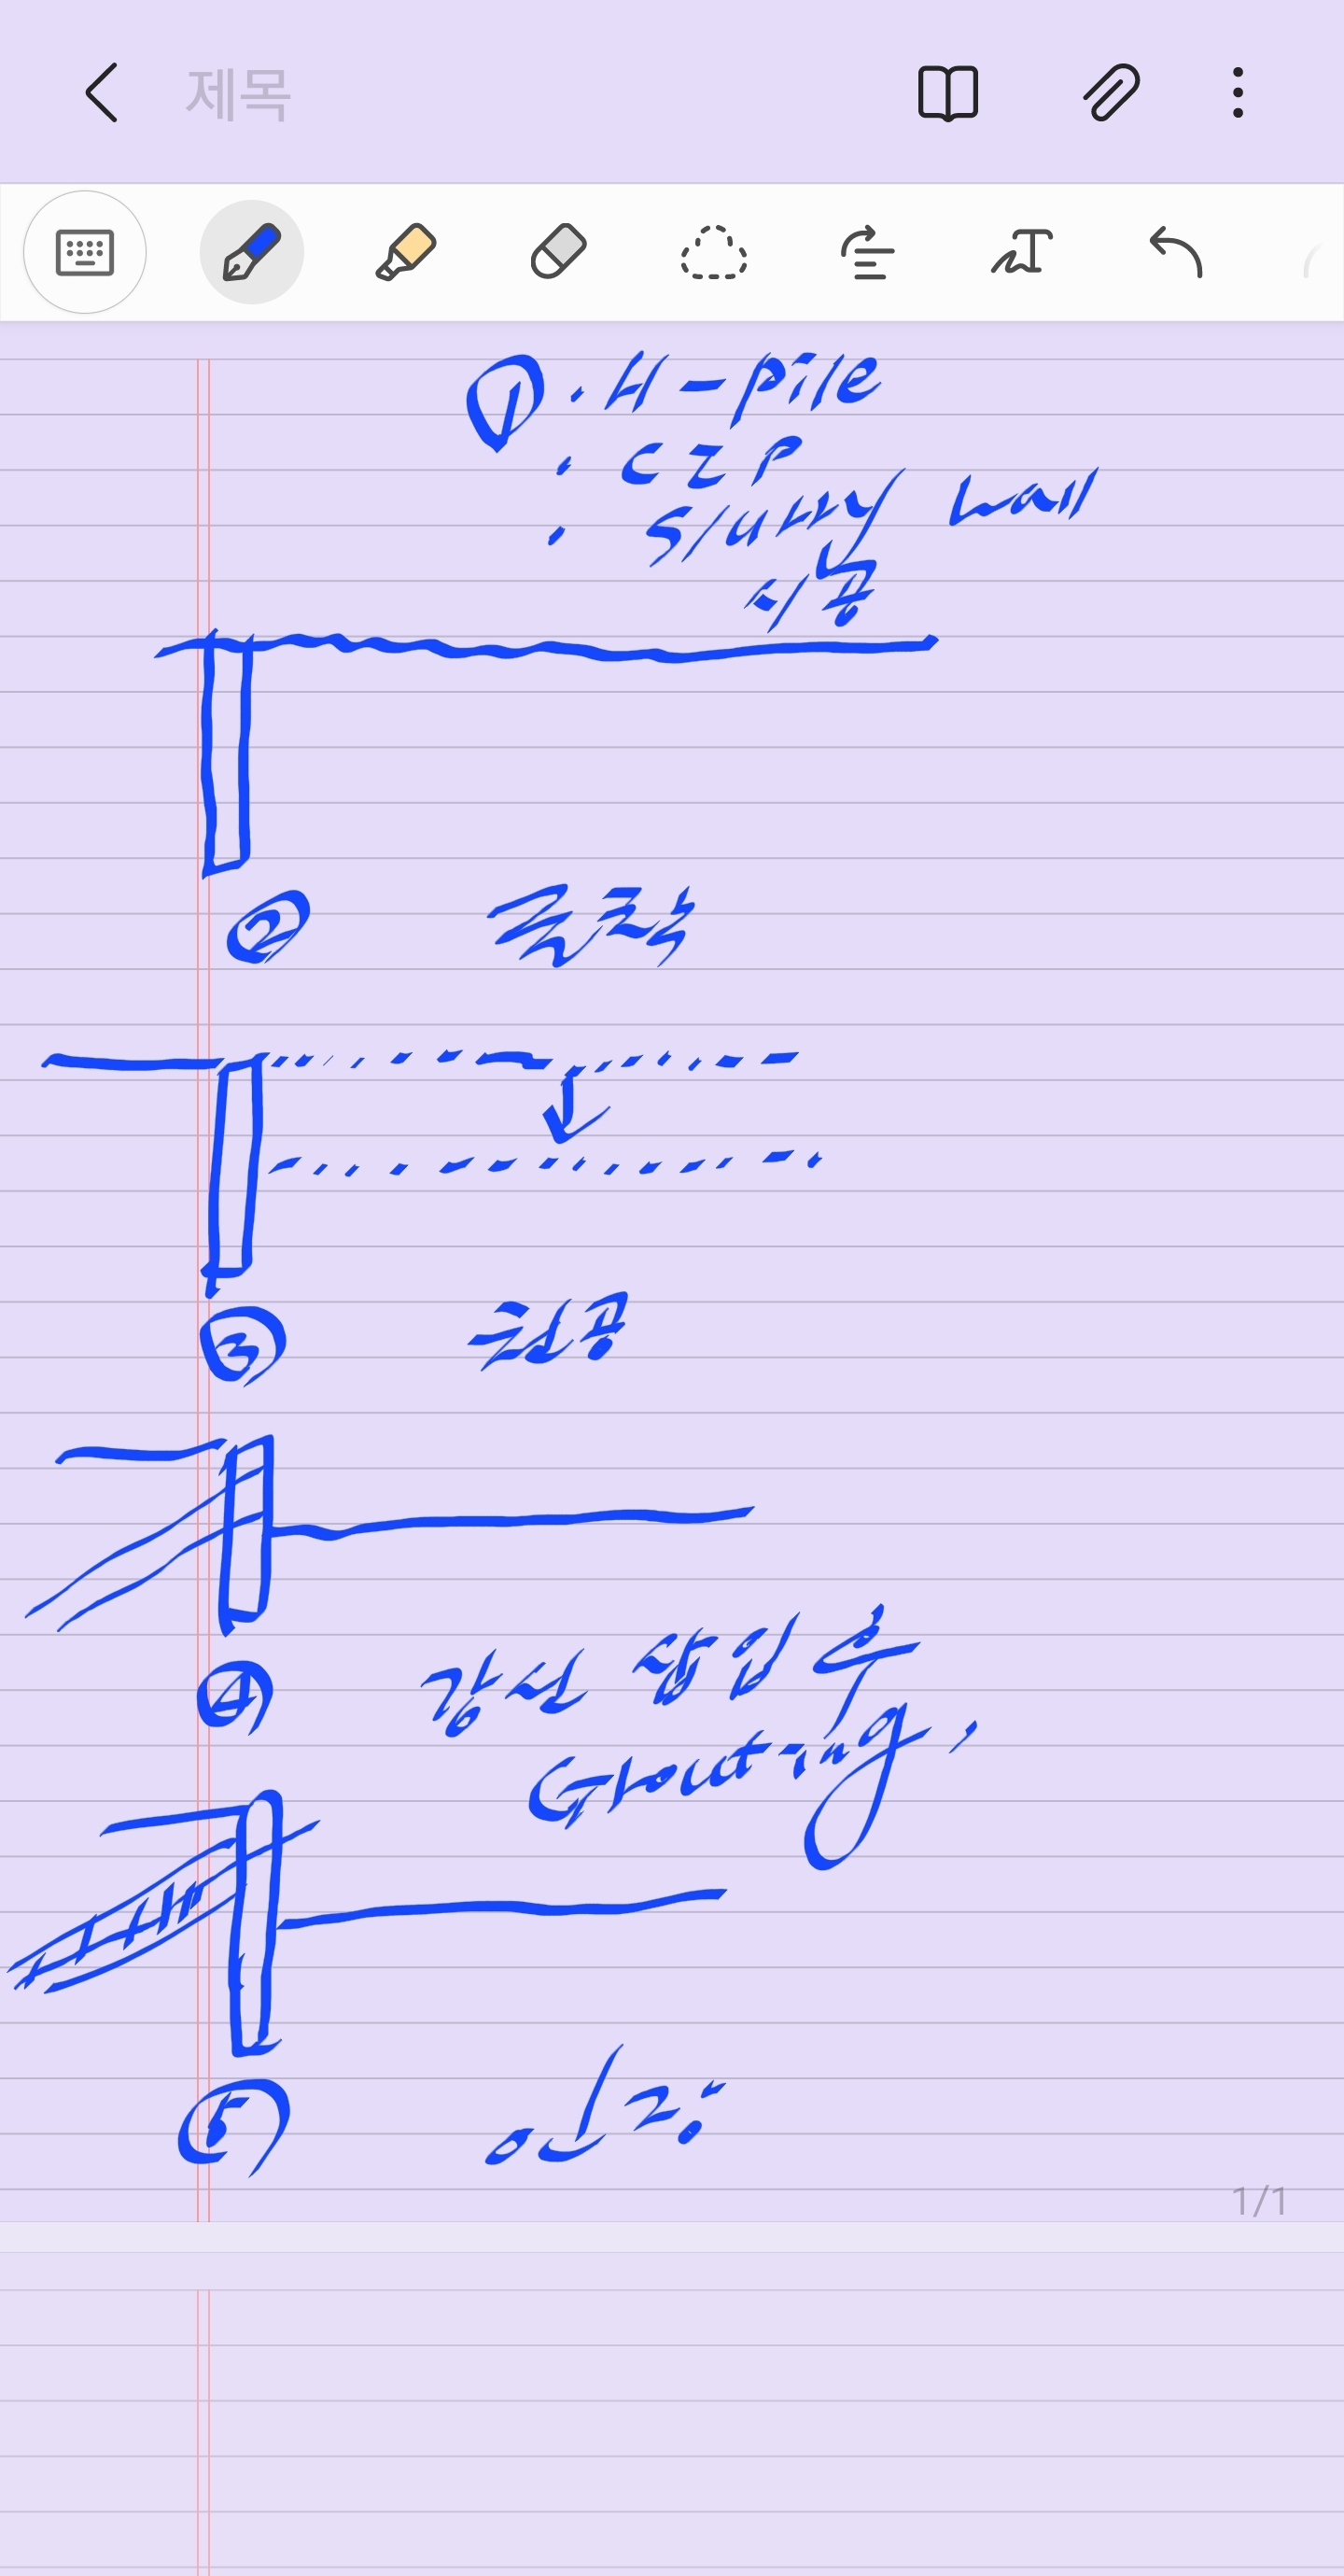 제목
① · H-pile
· CIP
· Slurry Wall
시공
② 굴착
③ 천공
④ 강선 삽입 후
Grouting,
⑤ 인장
1/1